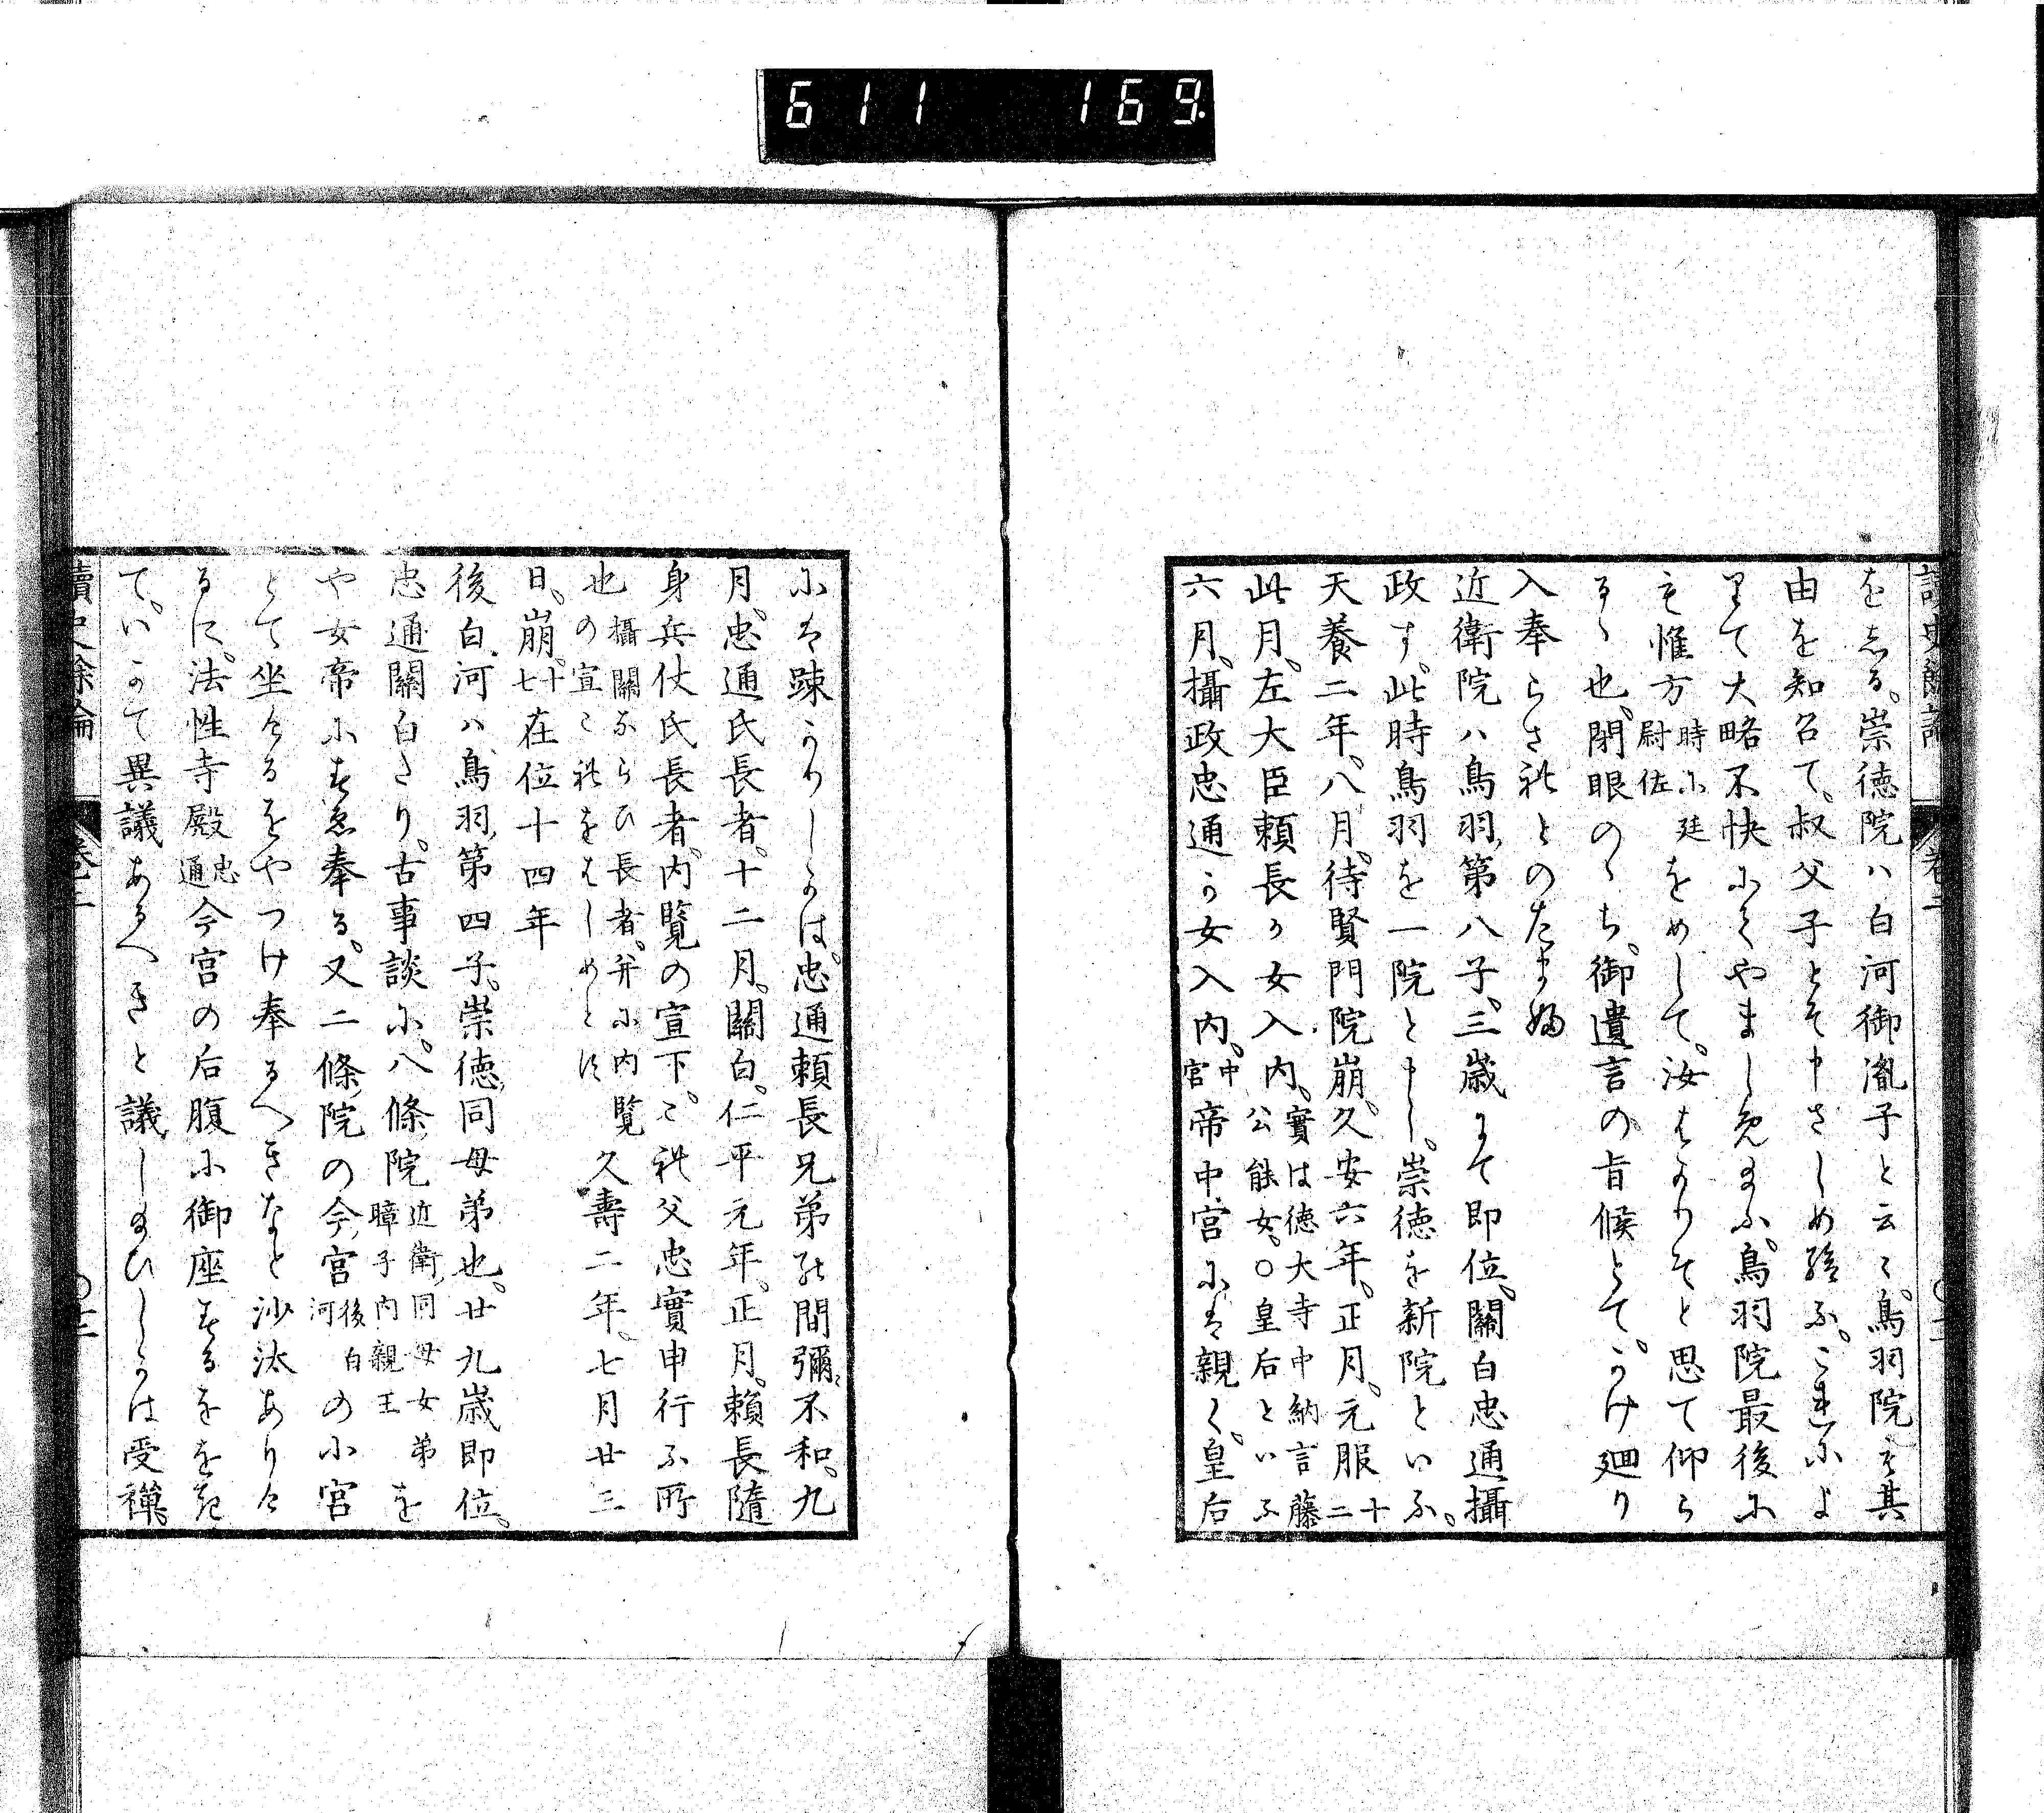 611 169
讀史餘論 卷二
をしる。崇徳院ハ白河御胤子と云〻。鳥羽院も其
由を知召て、叔父子とそ申さしめ給ふ。これによ
りて大略不快にてやましめ給ふ。鳥羽院最後に
も惟方時に廷尉佐をめして。汝はかりそと思て仰ら
るゝ也。閉眼のゝち。御遺言の旨候とて。かけ廻り
入奉らされとのたまふ
近衛院ハ鳥羽第八子。三歳にて即位。關白忠通攝
政す。此時鳥羽を一院と申し。崇徳を新院といふ。
天養二年。八月。待賢門院崩。久安六年。正月。元服十二
此月。左大臣頼長か女入内。實は徳大寺中納言藤公能女。〇皇后といふ
六月。攝政忠通か女入内。中宮帝中宮には親く。皇后
には踈かりしかは。忠通頼長兄弟の間彌不和。九
月。忠通氏長者。十二月。關白。仁平元年。正月。頼長隨
身兵仗氏長者。内覽の宣下。これ父忠實申行ふ所
也攝關ならひ長者。并に内覽の宣これをはしめとす久壽二年。七月廿三
日。崩。十七在位十四年
後白河ハ鳥羽第四子。崇徳同母弟也。廿九歳即位。
忠通關白たり。古事談に。八條院近衛同母女弟暲子内親王を
や女帝にすゑ奉る。又二條院の今宮後白河の小宮
とて坐けるをやつけ奉るへきなと沙汰ありけ
るに。法性寺殿忠通今宮の后腹に御座するををき
て。いかて異議あるへきと議しまひしかは受禪。
讀史餘論 卷二